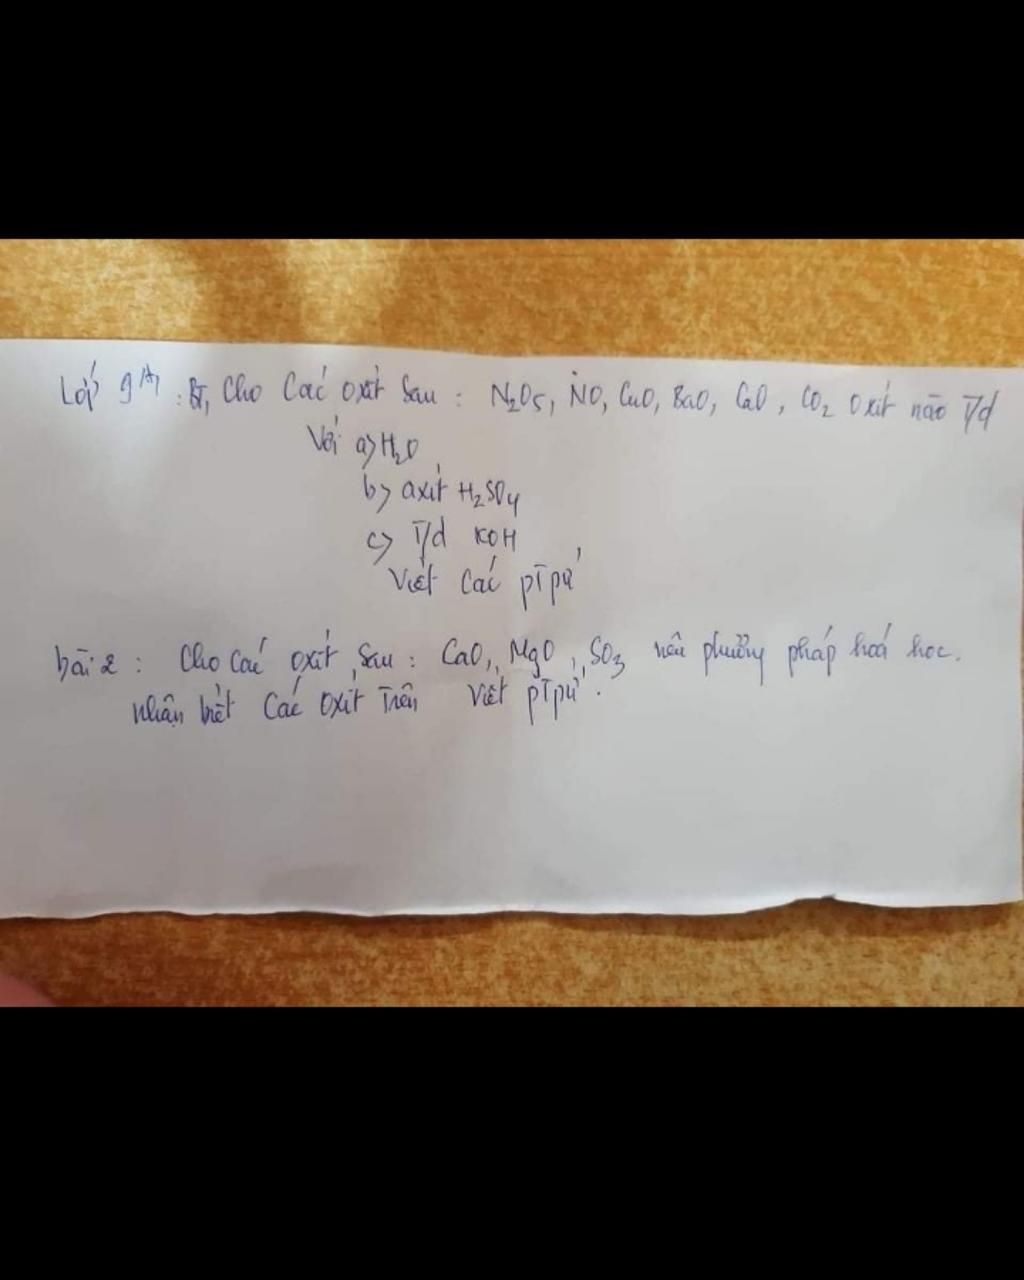 Lớp 9A1 : B1, Cho Các oxit Sau : N2O5, NO, CuO, BaO, CaO, CO2 oxit nào T/d
Với a> H2O
b> axit H2SO4
c> T/d KOH
Viết Các pTpứ
bài 2 : Cho Các oxit Sau : CaO, MgO, SO3 nêu phương pháp hoá học.
nhận biết Các oxit Trên Viết pTpứ.